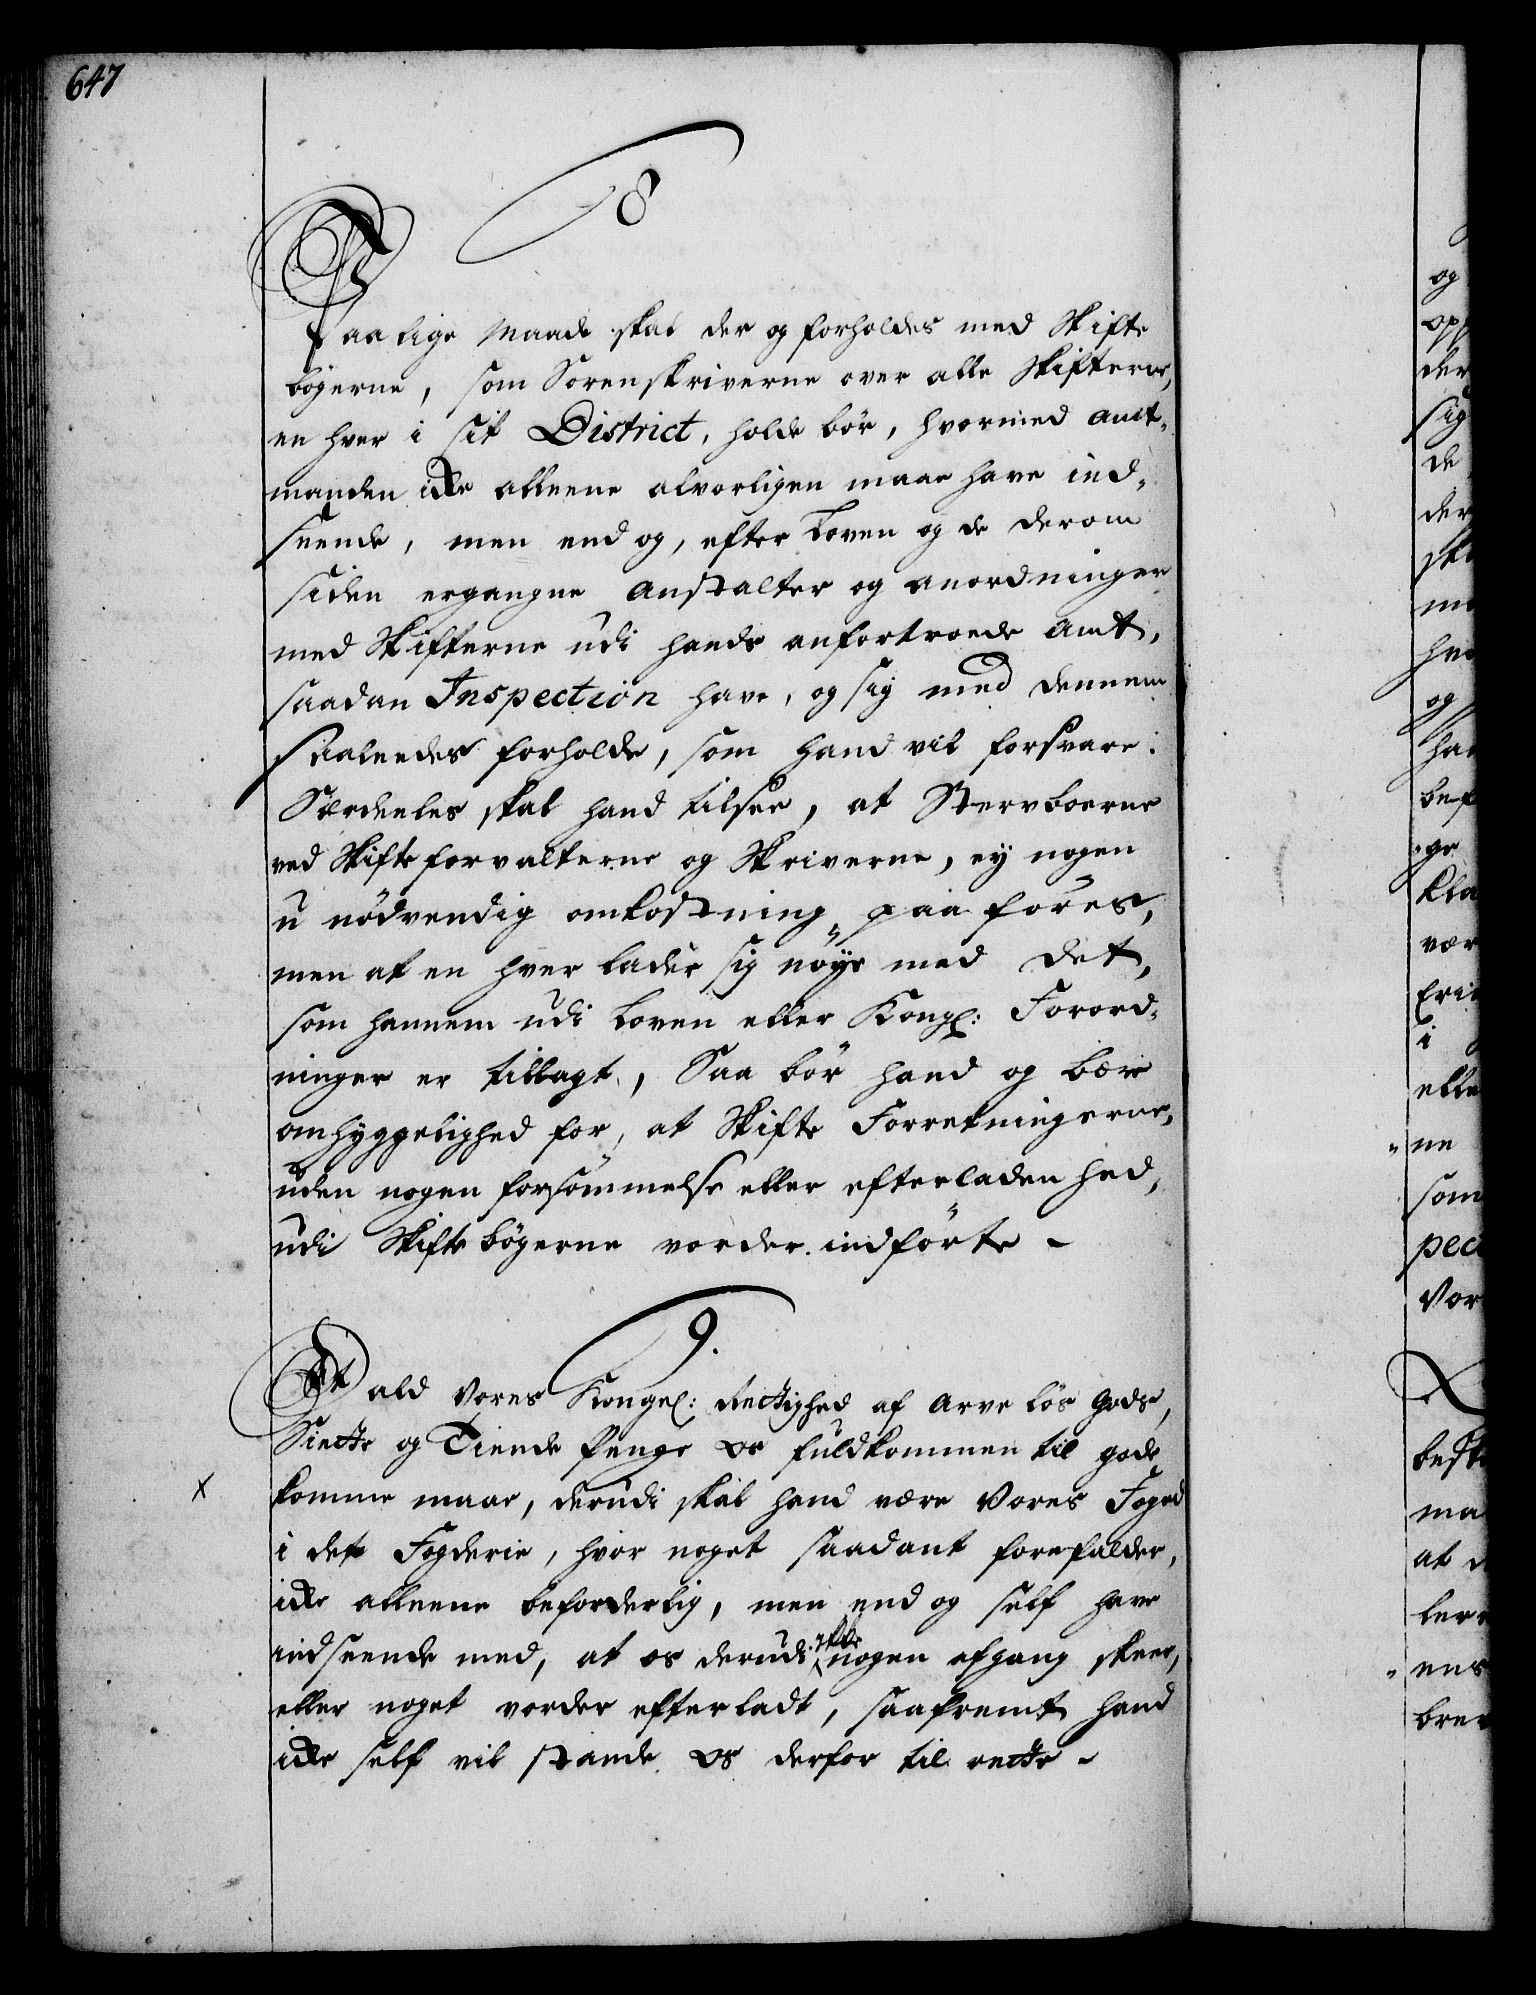 647
8
Paa lige Maade skal der og forholdes med Skifte
bøgerne, som Sorenskriverne over alle Skifterne,
en hver i sit District, holde bør, hvormed Amt-
manden icke alleene alvorligen maae have ind-
seende, men end og, efter Loven og de derom
siden ergangne Anstalter og anordninger
med Skifterne udi hands anfortroede Amt,
saadan Inspection have, og sig med dennem
saaleedes forholde, som hand vil forsvare:
Særdeeles skal hand tilsee, at Stervboerne
ved Skifteforvalterne og Skriverne, ey nogen
u nødvendig omkostning paa føres,
men at en hver lader sig nøye med det,
som hannem udi Loven eller Kongl: Forord-
ninger er tillagt, Saa bør hand og bære
omhyggelighed for, at Skifte Forretningerne,
uden nogen forsømmelse eller efterladenhed,
udi Skifte bøgerne vorder indførte -
9.
At ald Vores Kongel: Rettighed af Arve løs Gods,
Siette og Tiende Penge os fuldkommen til gode
x komme maae, derudi skal hand være Vores Foged
i det Fogderie, hvor noget saadant forefalder,
icke alleene beforderlig, men end og self have
indseende med, at os derudi icke nogen afgang skeer,
eller noget vorder efterladt, saafremt hand
icke self vil stande os derfor til rette -
og
der
sig
de
der
og
ge
vær
i
ne
som
pec
Vor
at